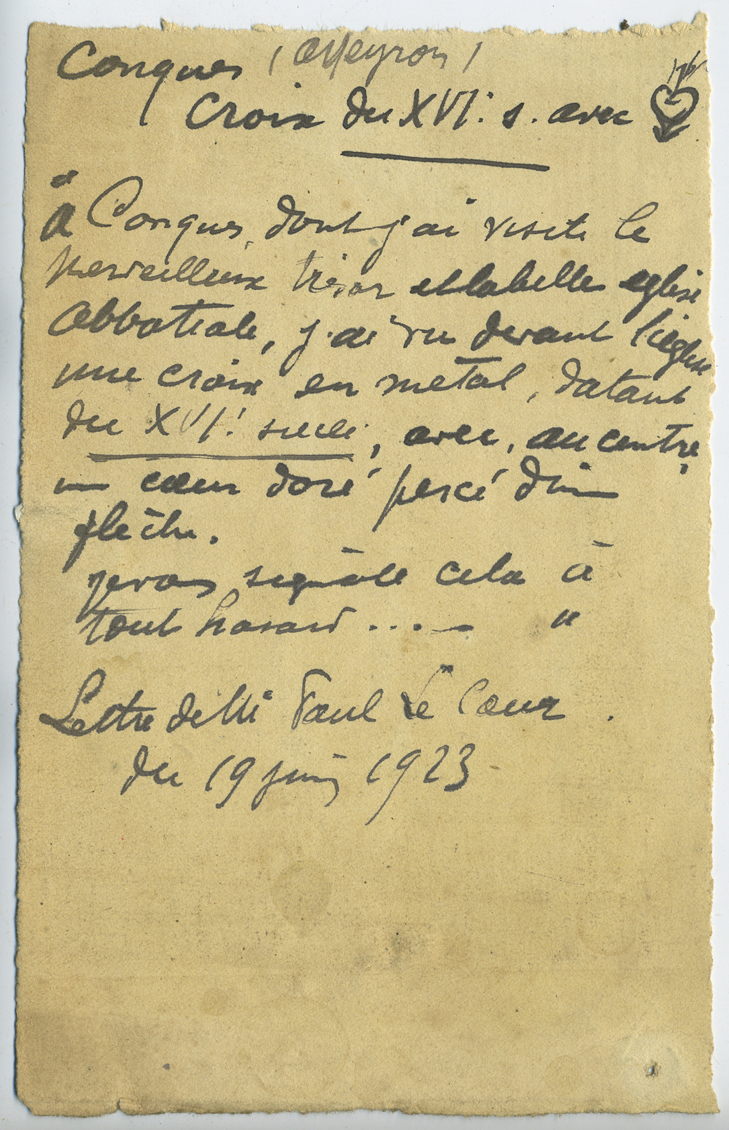 Conques (Aveyron)
Croix du XVI: s. avec
"à Conques, dont j'ai visité le
merveilleux trésor et la belle eglise
abbatiale, j'ai vu devant l'église
une croix en métal, datant
du XVI! siecle, avec, au centre,
un cœur doré percé d'une
flèche.
je vous signale cela à
tout hasard .... "
Lettre de Mr Paul Le Cour.
du 19 juin 1923